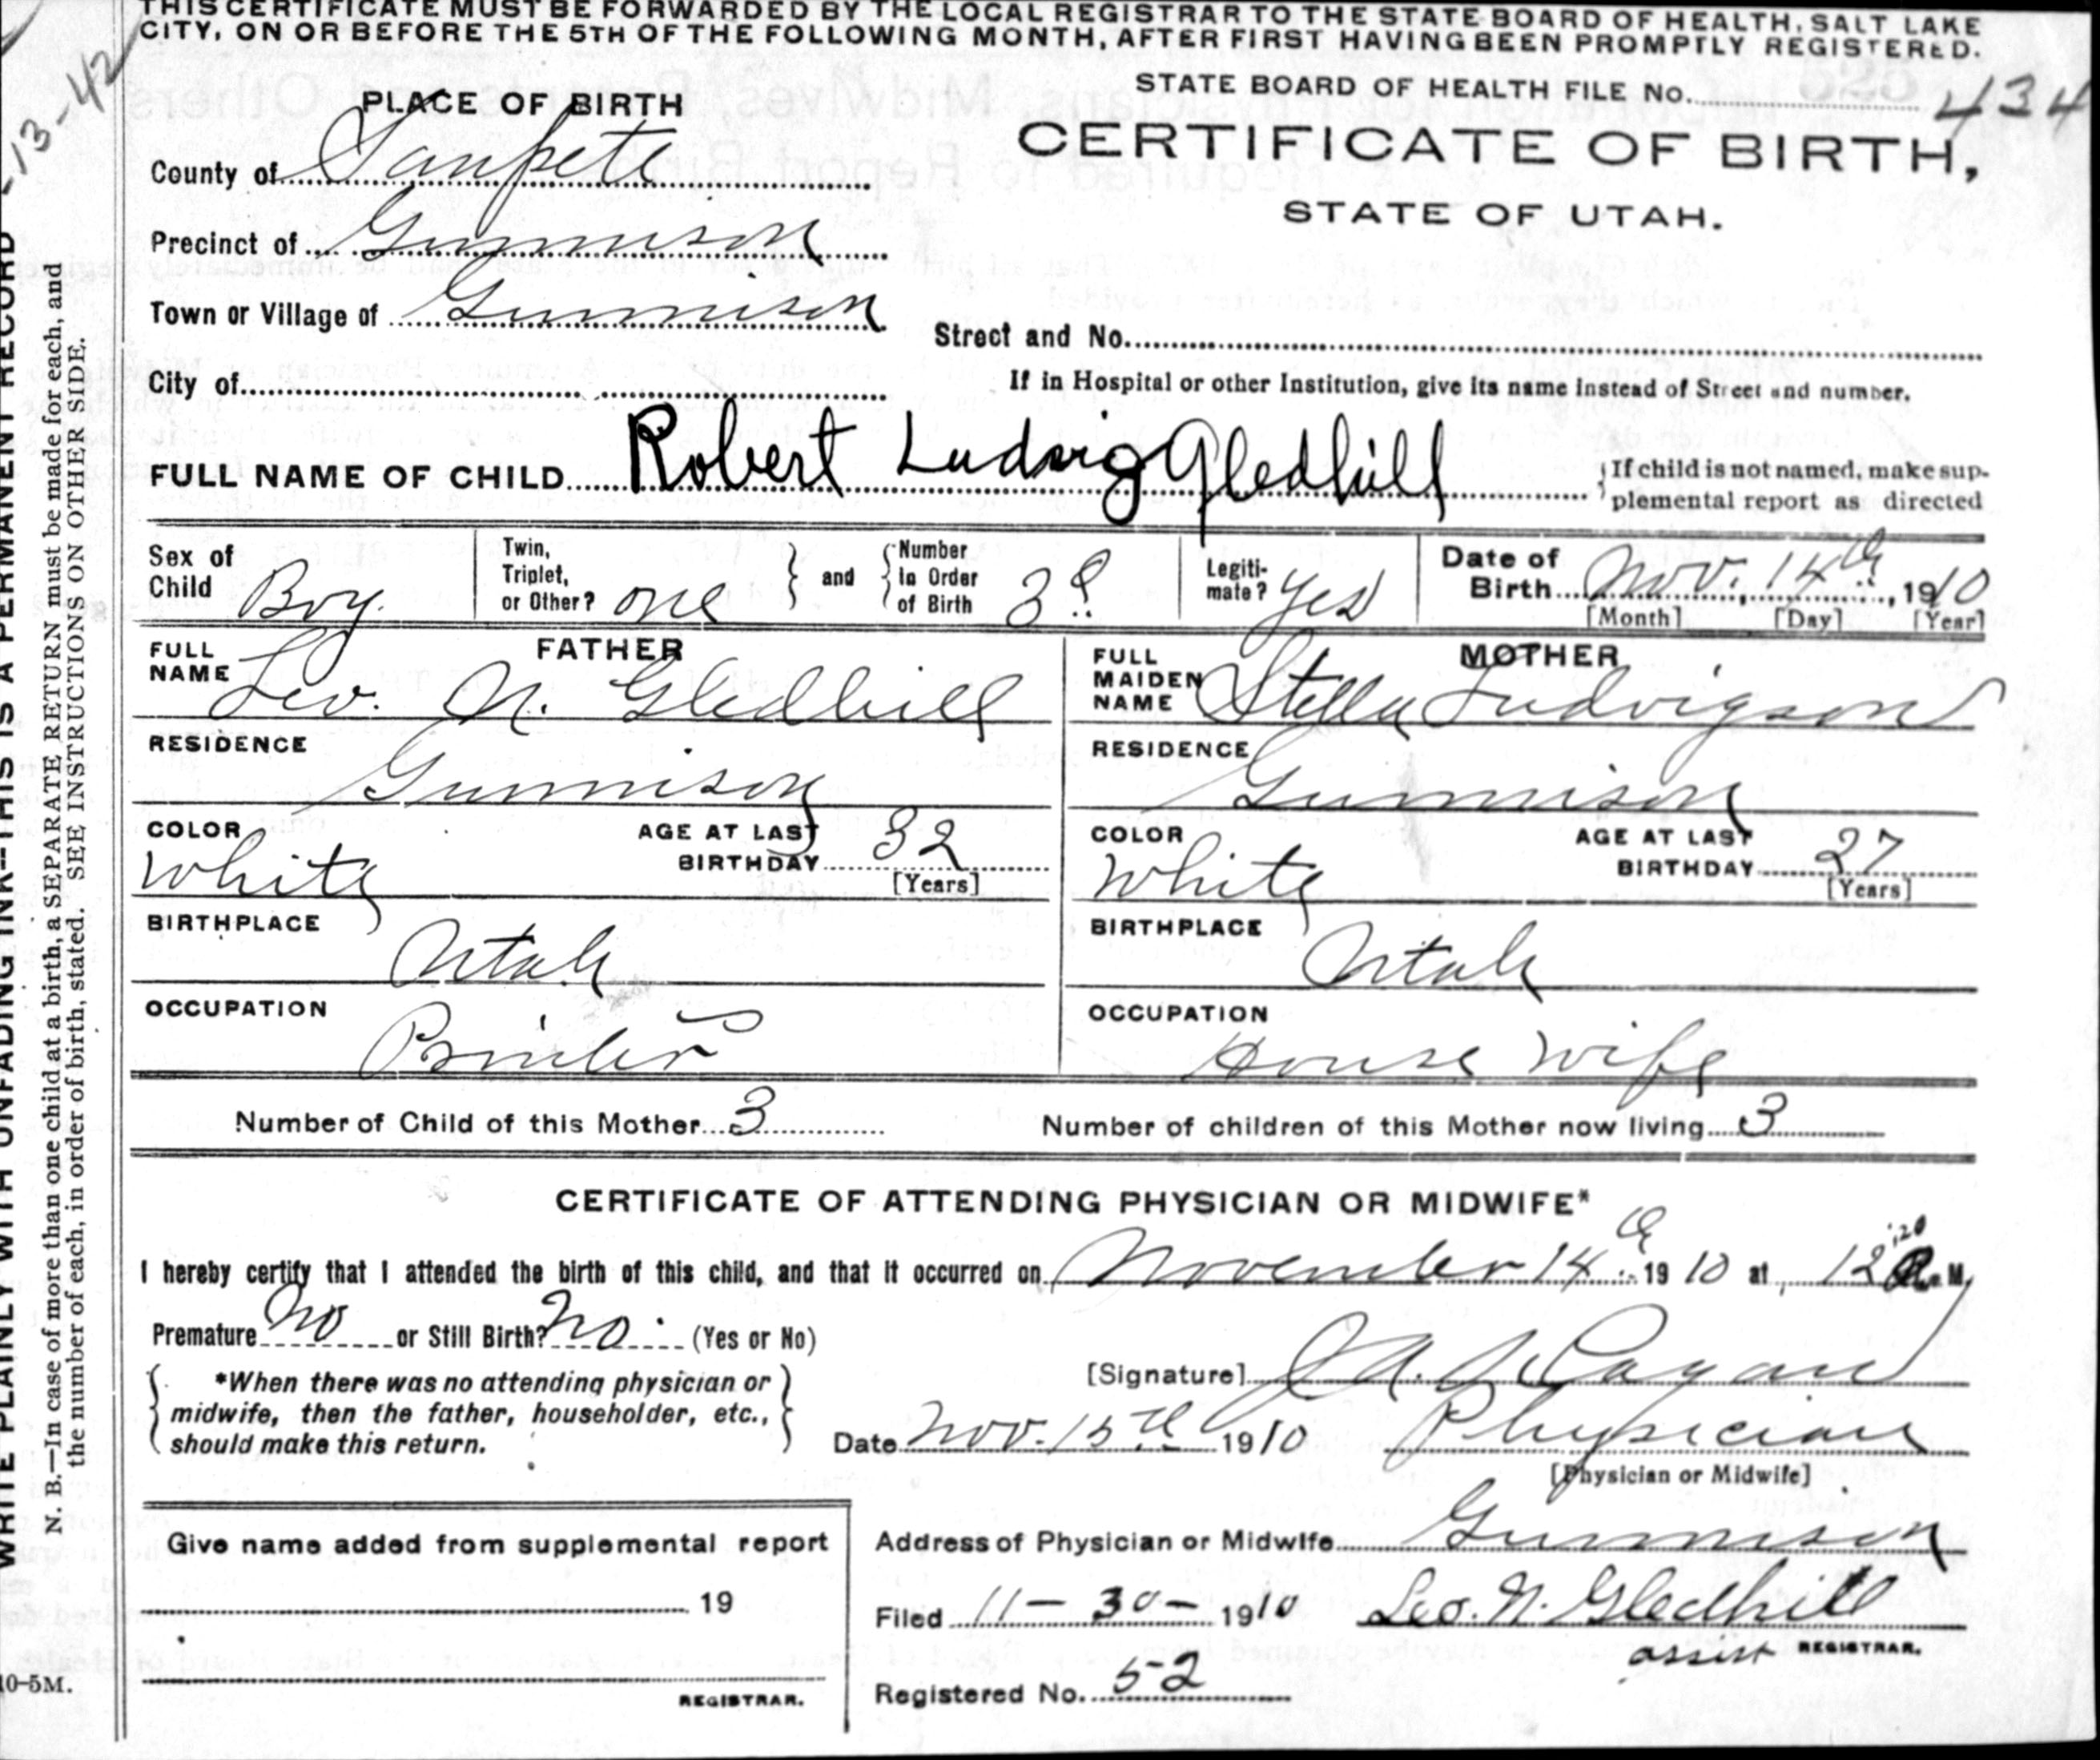 THIS CERTIFICATE MUST BE FORWARDED BY THE LOCAL REGISTRAR TO THE STATE BOARD OF HEALTH, SALT LAKE
CITY, ON OR BEFORE THE 5TH OF THE FOLLOWING MONTH, AFTER FIRST HAVING BEEN PROMPTLY REGISTERED.
-13-42
STATE BOARD OF HEALTH FILE No. 434
PLACE OF BIRTH
CERTIFICATE OF BIRTH,
STATE OF UTAH.
County of Sanpete
Precinct of Gunnison
Town or Village of Gunnison
Street and No.
City of
If in Hospital or other Institution, give its name instead of Street and number.
FULL NAME OF CHILD Robert Ludvig Gledhill
If child is not named, make sup-
plemental report as directed
Sex of Child Boy.
Twin, Triplet, or Other? one
and
Number in Order of Birth 3d
Legiti-mate? Yes
Date of Birth Nov. 14th, 1910
[Month] [Day] [Year]
FATHER
FULL NAME Leo. N. Gledhill
RESIDENCE
Gunnison
COLOR White
AGE AT LAST BIRTHDAY 32
[Years]
BIRTHPLACE
Utah
OCCUPATION
MOTHER
FULL MAIDEN NAME Stella Ludvigson
RESIDENCE
Gunnison
COLOR White
AGE AT LAST BIRTHDAY 27
[Years]
BIRTHPLACE
Utah
OCCUPATION
House Wife
Number of Child of this Mother 3
Number of children of this Mother now living 3
CERTIFICATE OF ATTENDING PHYSICIAN OR MIDWIFE*
I hereby certify that I attended the birth of this child, and that it occurred on November 14th 1910 at 12:20 M,
Premature No or Still Birth? No. (Yes or No)
*When there was no attending physician or
midwife, then the father, householder, etc.,
should make this return.
[Signature]
Date Nov. 15th 1910 Physician
[Physician or Midwife]
Give name added from supplemental report
19
REGISTRAR.
Address of Physician or Midwife Gunnison
Filed 11-30-1910 Leo. N. Gledhill
assist REGISTRAR.
Registered No. 52
WRITE PLAINLY WITH UNFADING INK--THIS IS A PERMANENT RECORD
N. B.—In case of more than one child at a birth, a SEPARATE RETURN must be made for each, and
the number of each, in order of birth, stated. SEE INSTRUCTIONS ON OTHER SIDE.
10-5M.